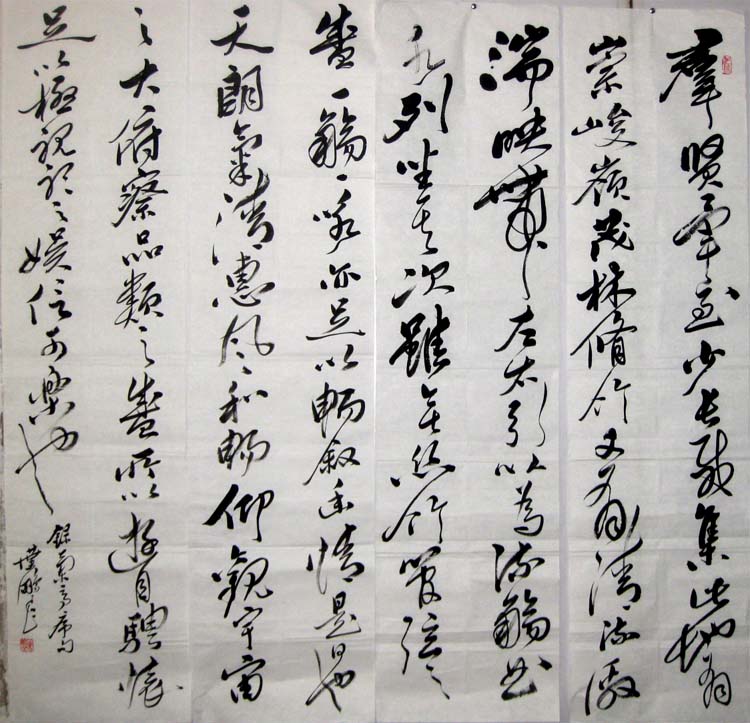 群賢畢至少長咸集此地有
崇峻嶺茂林脩竹又有清流激
湍映帶左右引以為流觴曲
水列坐其次雖無絲竹管弦之
盛一觴一詠亦足以暢敘幽情是日也
天朗氣清惠風和暢仰觀宇宙
之大俯察品類之盛所以遊目騁懷
足以極視聽之娛信可樂也
錄蘭亭序句